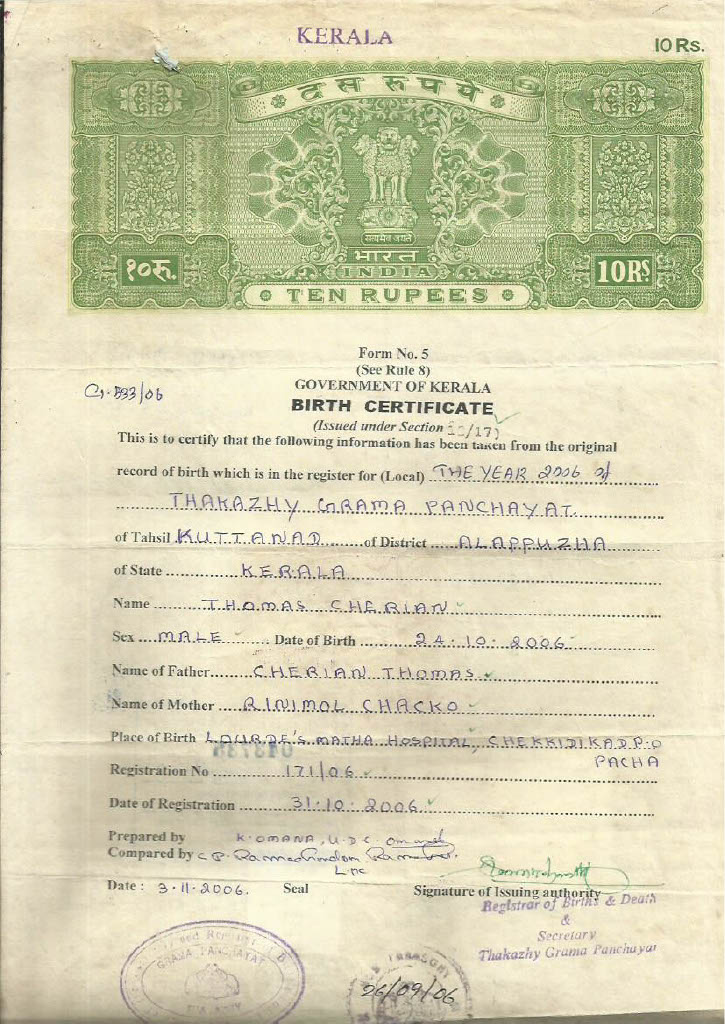 KERALA
10 Rs.
दस रुपये
सत्यमेव जयते
भारत
INDIA
१०रु.
10Rs
TEN RUPEES
Form No. 5
(See Rule 8)
GOVERNMENT OF KERALA
BIRTH CERTIFICATE
(Issued under Section 12/17)
This is to certify that the following information has been taken from the original
record of birth which is in the register for (Local) THE YEAR 2006 of
THAKAZHY GRAMA PANCHAYAT.
of Tahsil KUTTANAD of District ALAPPUZHA
of State KERALA
Name THOMAS CHERIAN
Sex MALE Date of Birth 24.10.2006
Name of Father CHERIAN THOMAS
Name of Mother RINIMOL CHACKO
Place of Birth LOURDE'S MATHA HOSPITAL, CHEKKIDIKAD P.O
PACHA
Registration No 171/06
Date of Registration 31.10.2006
Prepared by K.OMANA, U.D.C
Compared by
Date : 3.11.2006. Seal
Signature of Issuing authority
Registrar of Births & Death
&
Secretary
Thakazhy Grama Panchayat
GRAMA PANCHAYAT
TREASURY
26/09/06